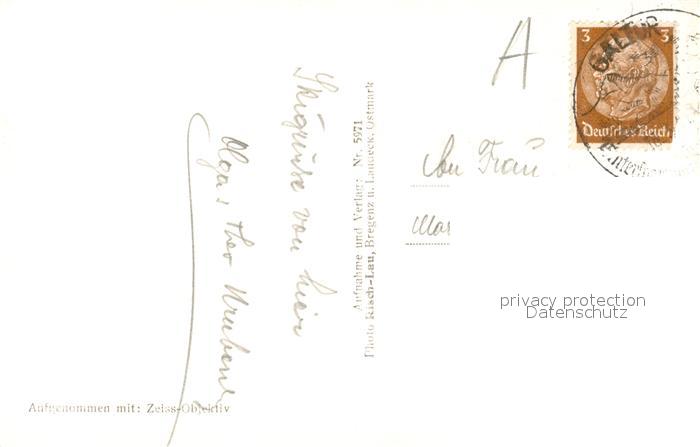 A
3 3
GALTÜR
Deutsches Reich
An Frau
Mar
privacy protection
Datenschutz
Skigrüsse von hier
Olga, Theo
Aufnahme und Verlag: Nr. 5971
Photo Risch-Lau, Bregenz u. Landeck, Ostmark
Aufgenommen mit: Zeiss-Objektiv